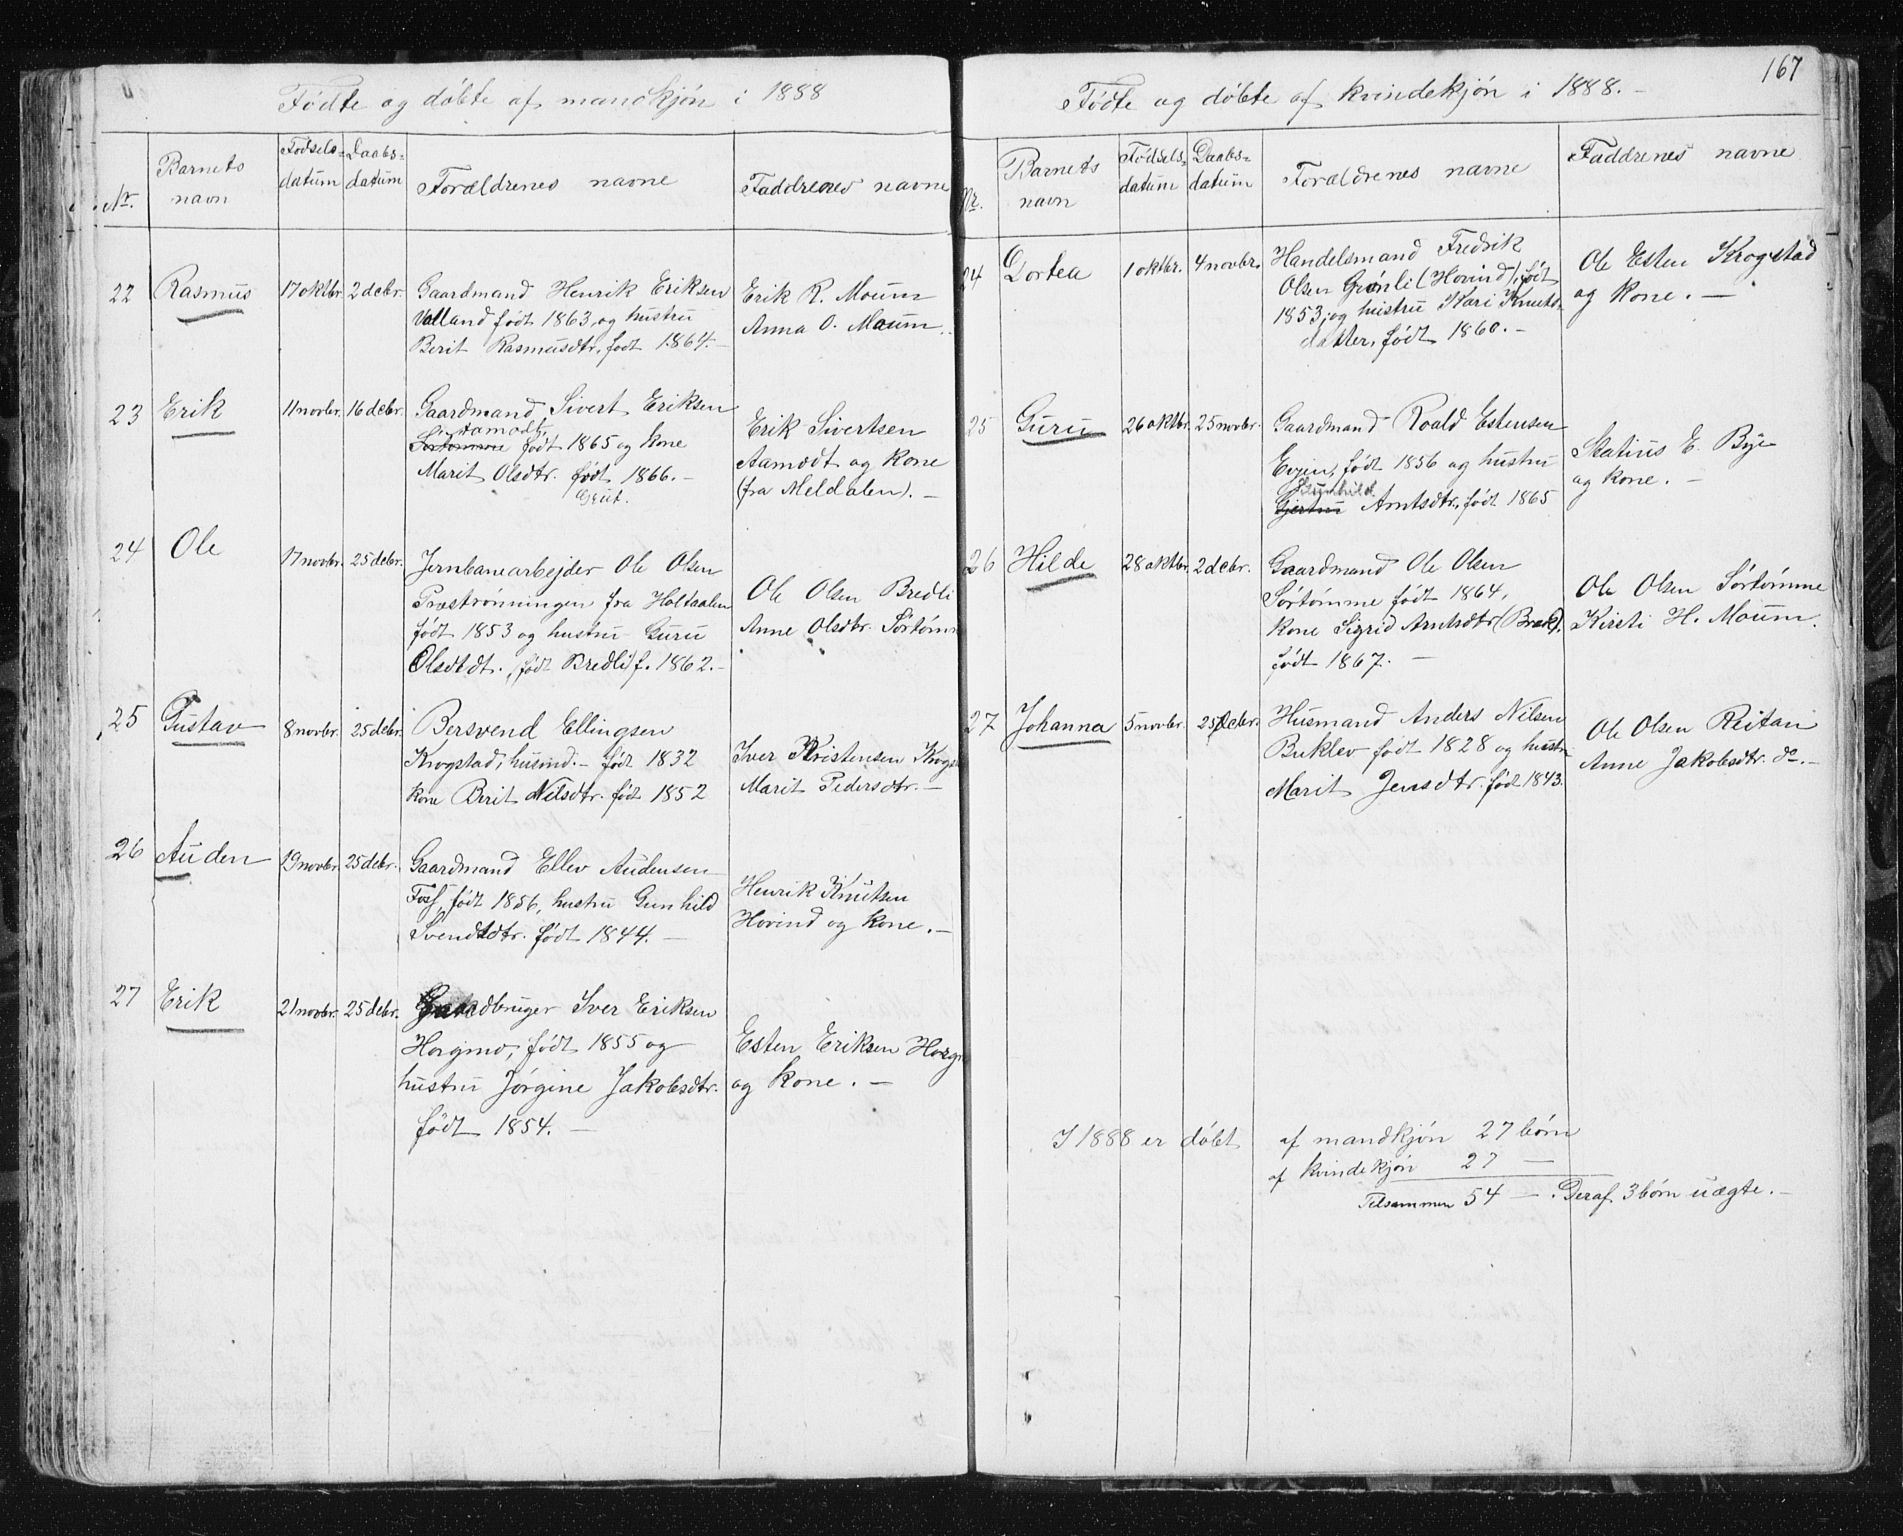 Fødte og døbte af mandkjøn i 1888
Nr.
Barnets
navn
Fødsels-
datum
Daabs-
datum
Forældrenes navne
Faddrenes navne
22
Rasmus
17 oktbr.
2 debr.
Gaardmand Henrik Eriksen
Valland født 1863, og hustru
Berit Rasmusdtr. født 1864.-
Erik R. Moum
Anna O. Moum.
23
Erik
11 novbr.
16 debr.
Gaardmand Sivert Eriksen
Aamodt
født 1865 og kone
Marit Olsdtr. født 1866.-
Grut.
Erik Sivertsen
Aamodt og kone
(fra Meldalen). -
24
Ole
17 novbr.
25 debr.
Jernbanearbejder Ole Olsen
Præstrønningen fra Holtaalen
født 1853 og hustru Guru
Olsdtdt. født Bredli f. 1862.-
Ole Olsen Bredli
Anne Olsdtr. Sørtøm
25
Gustav
8 novbr.
25 debr.
Bersvend Ellingsen
Krogstad, husmd.- født 1832
kone Berit Nilsdtr. født 1852
Iver Kristensen Krogs
Marit Pedersdtr. -
26
Auden
19 novbr.
25 debr.
Gaardmand Ellev Audensen
Foss, født 1856, hustru Gunhild
Svendsdtr. født 1844. -
Henrik Knutsen
Hovind og kone. -
27
Erik
21 novbr.
25 debr.
Gaardbruger Iver Eriksen
Horgmo, født 1855 og
hustru Jørgine Jakobsdtr.
født 1854. -
Esten Eriksen Horgm
og kone. -
167
Fødte og døbte af kvindekjøn i 1888.-
Nr.
Barnets
navn
Fødsels-
datum
Daabs-
datum
Forældrenes navne
Faddrenes navne
24
Dortea
1 oktbr.
4 novbr.
Handelsmand Fredrik
Olsen Grønli (Hovind), født
1853, og hustru Kari Knuts-
datter, født 1860.-
Ole Esten Krogstad
og kone. -
25
Guru
26 oktbr.
25 novbr.
Gaardmand Roald Estensen
Evjen, født 1856 og hustru
Gunhild
Gjertru Arntsdtr., født 1865
Statius E. Bye
og kone. -
26
Hilde
28 oktbr.
2 debr.
Gaardmand Ole Olsen
Sørtømme født 1864,
kone Sigrid Arntsdtr (Bræk),
født 1867. -
Ole Olsen Sørtømme
Kirsti H. Moum.
27
Johanna
5 novbr.
25 debr.
Husmand Anders Nilsen
Buklev født 1828 og hustru
Marit Jensdtr. født 1843.
Ole Olsen Reitan
Anne Jakobsdtr. do. -
I 1888 er døbt af mandkjøn 27 børn
af kvindekjøn 27 -
Tilsammen 54 - . Deraf 3 børn uægte. -